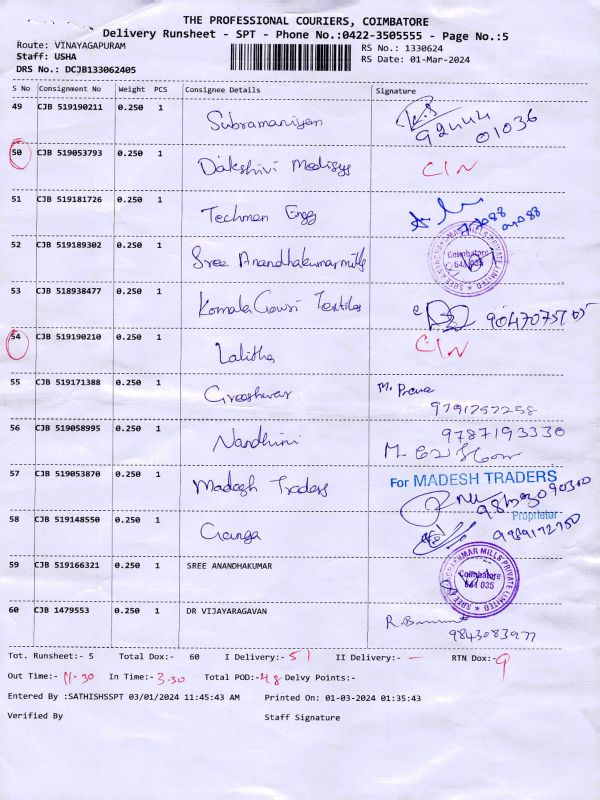 THE PROFESSIONAL COURIERS, COIMBATORE
Delivery Runsheet - SPT - Phone No.:0422-3505555 - Page No.:5
Route: VINAYAGAPURAM RS No.: 1330624
Staff: USHA RS Date: 01-Mar-2024
DRS No.: DCJB133062405
S No Consignment No Weight PCS Consignee Details Signature
49 CJB 519190211 0.250 1 Subramaniyam 92444 01036
50 CJB 519053793 0.250 1 Dakshivi Medisys CIN
51 CJB 519181726 0.250 1 Techman Engg
52 CJB 519189302 0.250 1 Sree Anandhakumar mills Coimbatore 641 035
53 CJB 518938477 0.250 1 Komala Gowri Textiles
54 CJB 519190210 0.250 1 Lalitha CIN
55 CJB 519171388 0.250 1 Greeshwar 9791257258
56 CJB 519058995 0.250 1 Nandhini 9787193330
57 CJB 519053870 0.250 1 Madesh Traders For MADESH TRADERS
Proprietor
58 CJB 519148550 0.250 1 Ganga
59 CJB 519166321 0.250 1 SREE ANANDHAKUMAR Coimbatore 641 035
60 CJB 1479553 0.250 1 DR VIJAYARAGAVAN
Tot. Runsheet:- 5 Total Dox:- 60 I Delivery:- 51 II Delivery:- - RTN Dox:- 9
Out Time:- 11.30 In Time:- 3.30 Total POD:- 48 Delvy Points:-
Entered By :SATHISHSSPT 03/01/2024 11:45:43 AM Printed On: 01-03-2024 01:35:43
Verified By Staff Signature